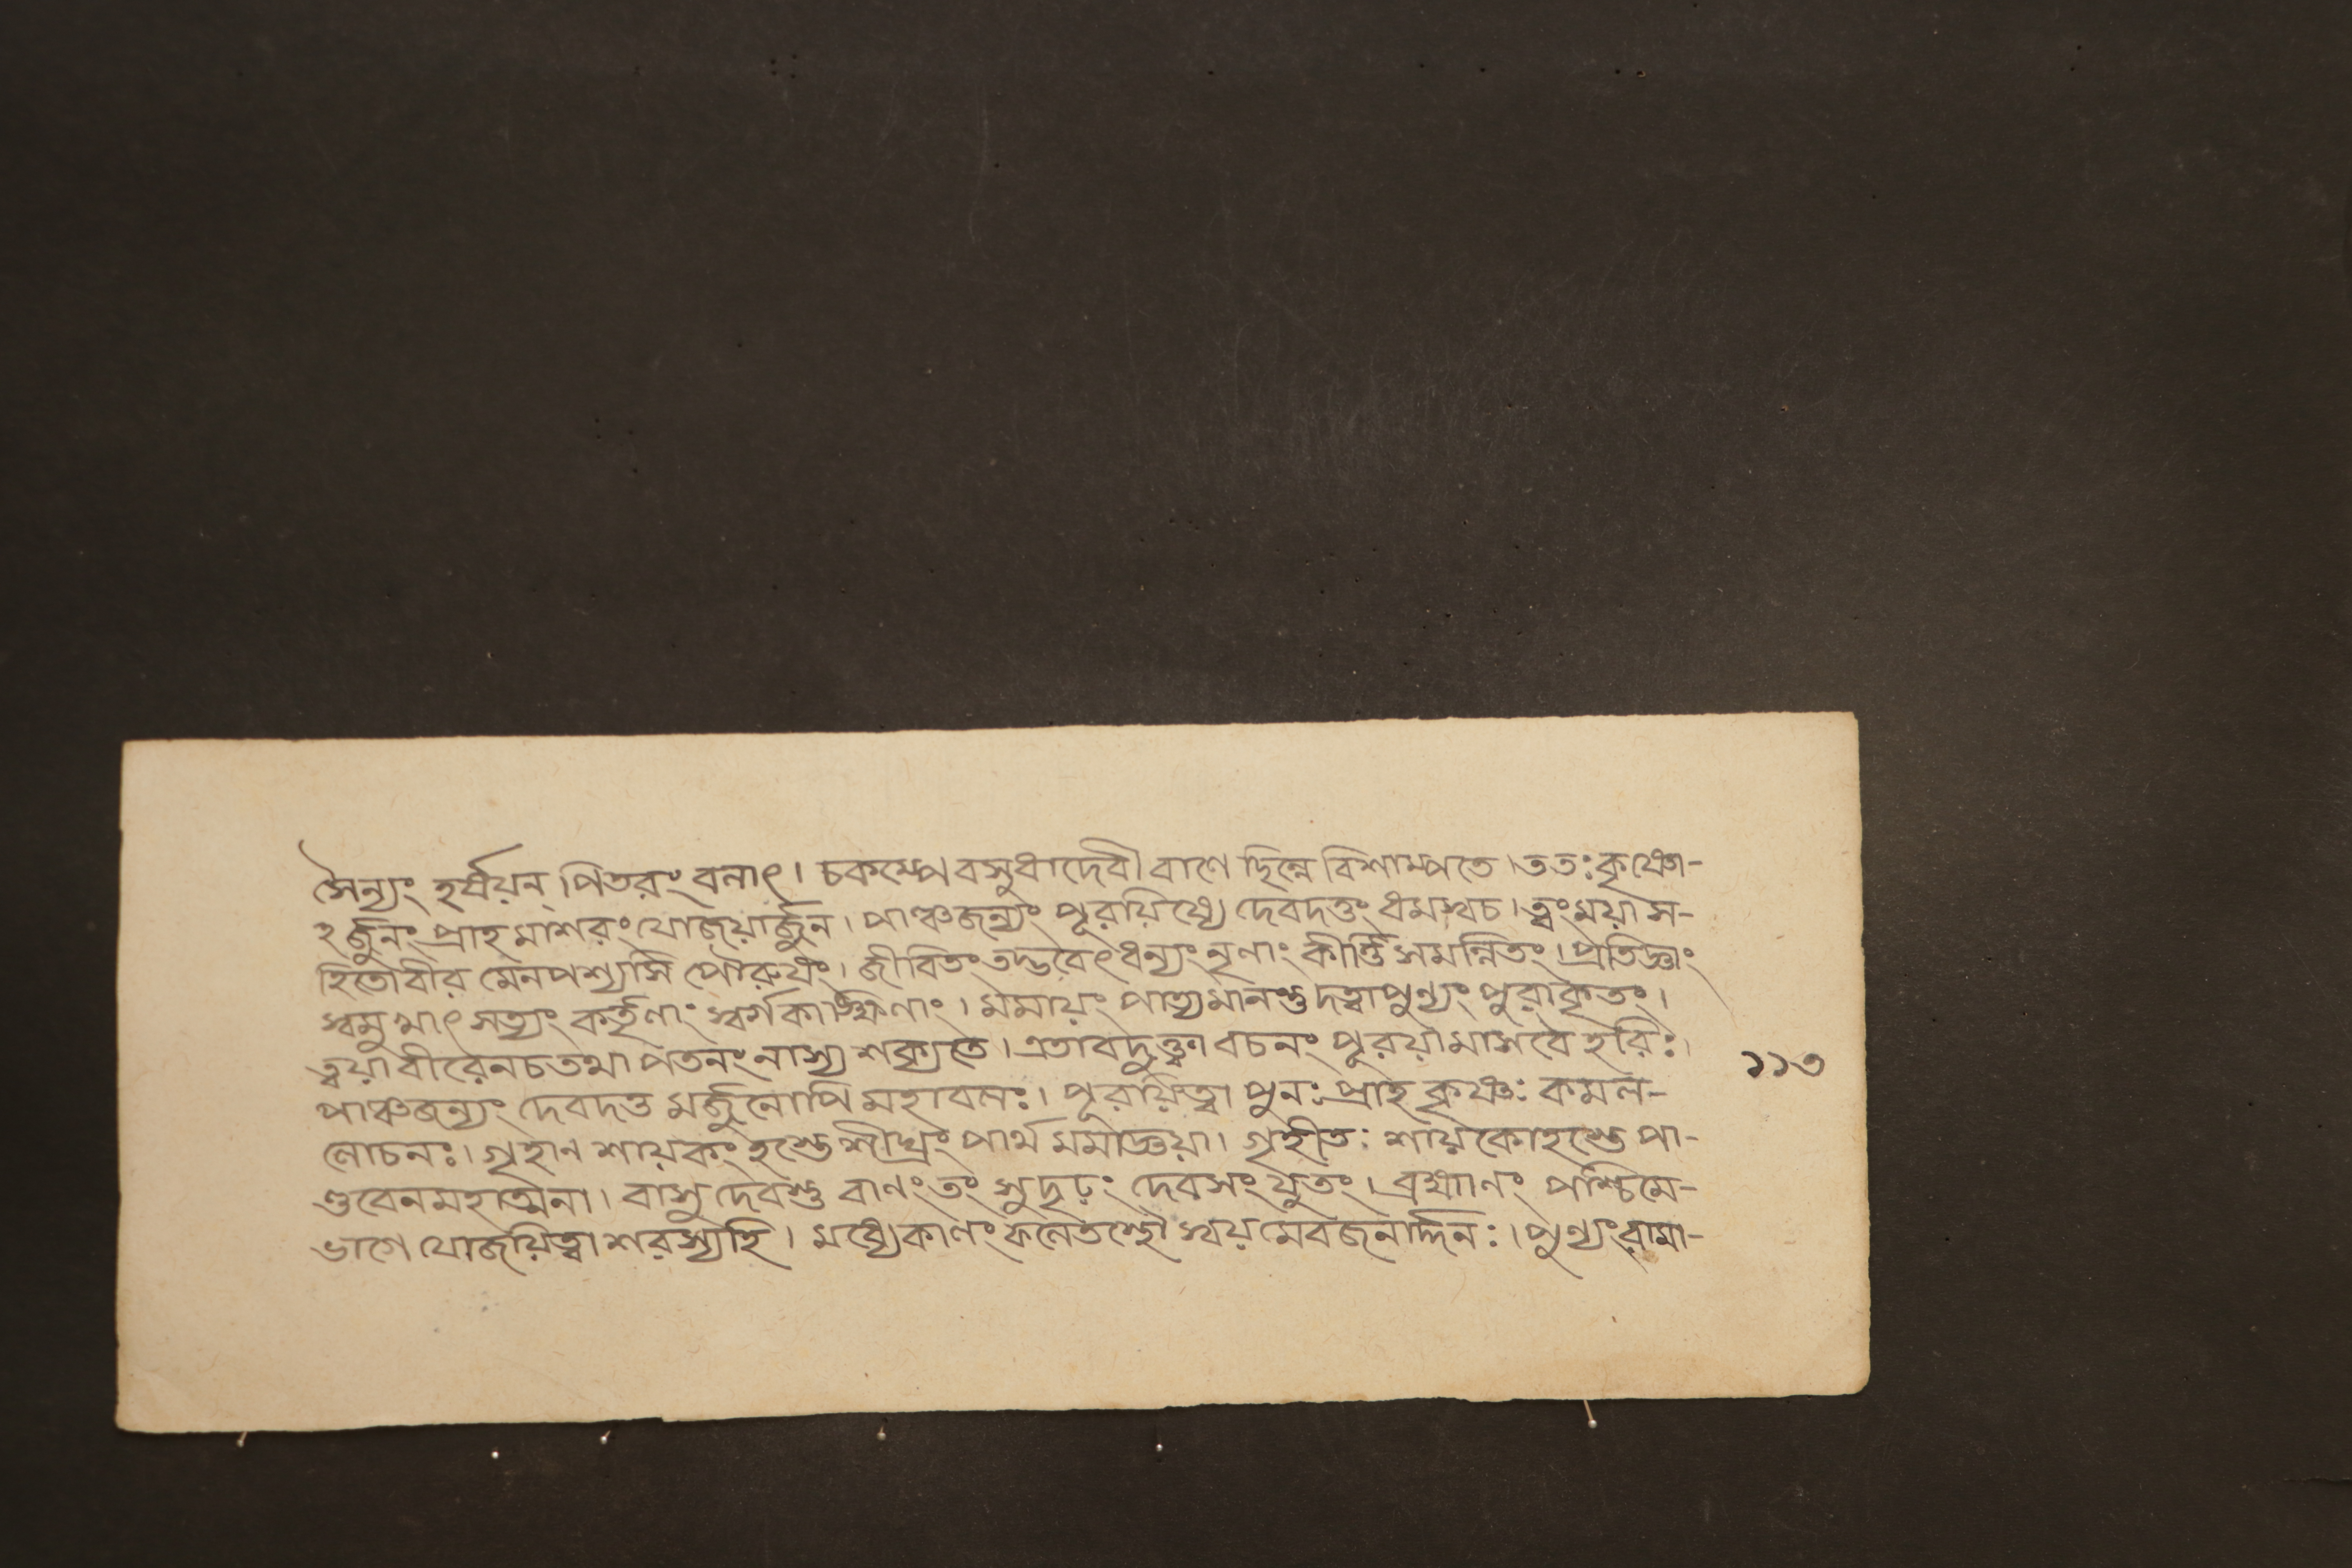 সৈন্যং হর্ষয়ন্ পিতরং বলাৎ। চকম্পে বসুধাদেবী বাণে ছিন্নে বিশাম্পতে। ততঃ কৃষ্ণো-
হর্জুনং প্রাহ মাশরং যোজয়ার্জুন। পাঞ্চজন্যং পূরয়িষ্যে দেবদত্তং ধমস্বচ। ত্বং ময়া স-
হিতোবীর মেনপশ্যসি পৌরুষং। জীবিতং তদ্ভবেৎ ধন্যং নৃণাং কীর্ত্তি সমন্নিতং। প্রতিজ্ঞাং
স্বমুখাৎ সত্যং কর্তৃণাং স্বর্গকাঙ্ক্ষিণাং। মমায়ং পাত্যমানস্তু দত্বাপুণ্যং পুরাকৃতং।
ত্বয়া বীরেনচ তথা পতনং নাস্য শক্যতে। এতাবদুক্ত্বা বচনং পূরয়ামাসবৈ হরিঃ।
পাঞ্চজন্যং দেবদত্ত মর্জুনোপি মহাবলঃ। পূরয়িত্বা পুনঃ প্রাহ কৃষ্ণঃ কমল-
লোচনঃ। গৃহাণ শায়কং হস্তে শীঘ্রং পার্থ মমাজ্ঞয়া। গৃহীতঃ শায়কোহস্তে পা-
ণ্ডবেনমহাত্মনা। বাসুদেবস্তু বাণং তং সুদৃঢ়ং দেবসংযুতং। ব্রহ্মাণং পশ্চিমে-
ভাগে যোজয়িত্বা শরস্যহি। মধ্যেকালং ফলেতস্থৌ স্বয়মেবজনার্দ্দনঃ। পুণ্যং রামা-
১১৩